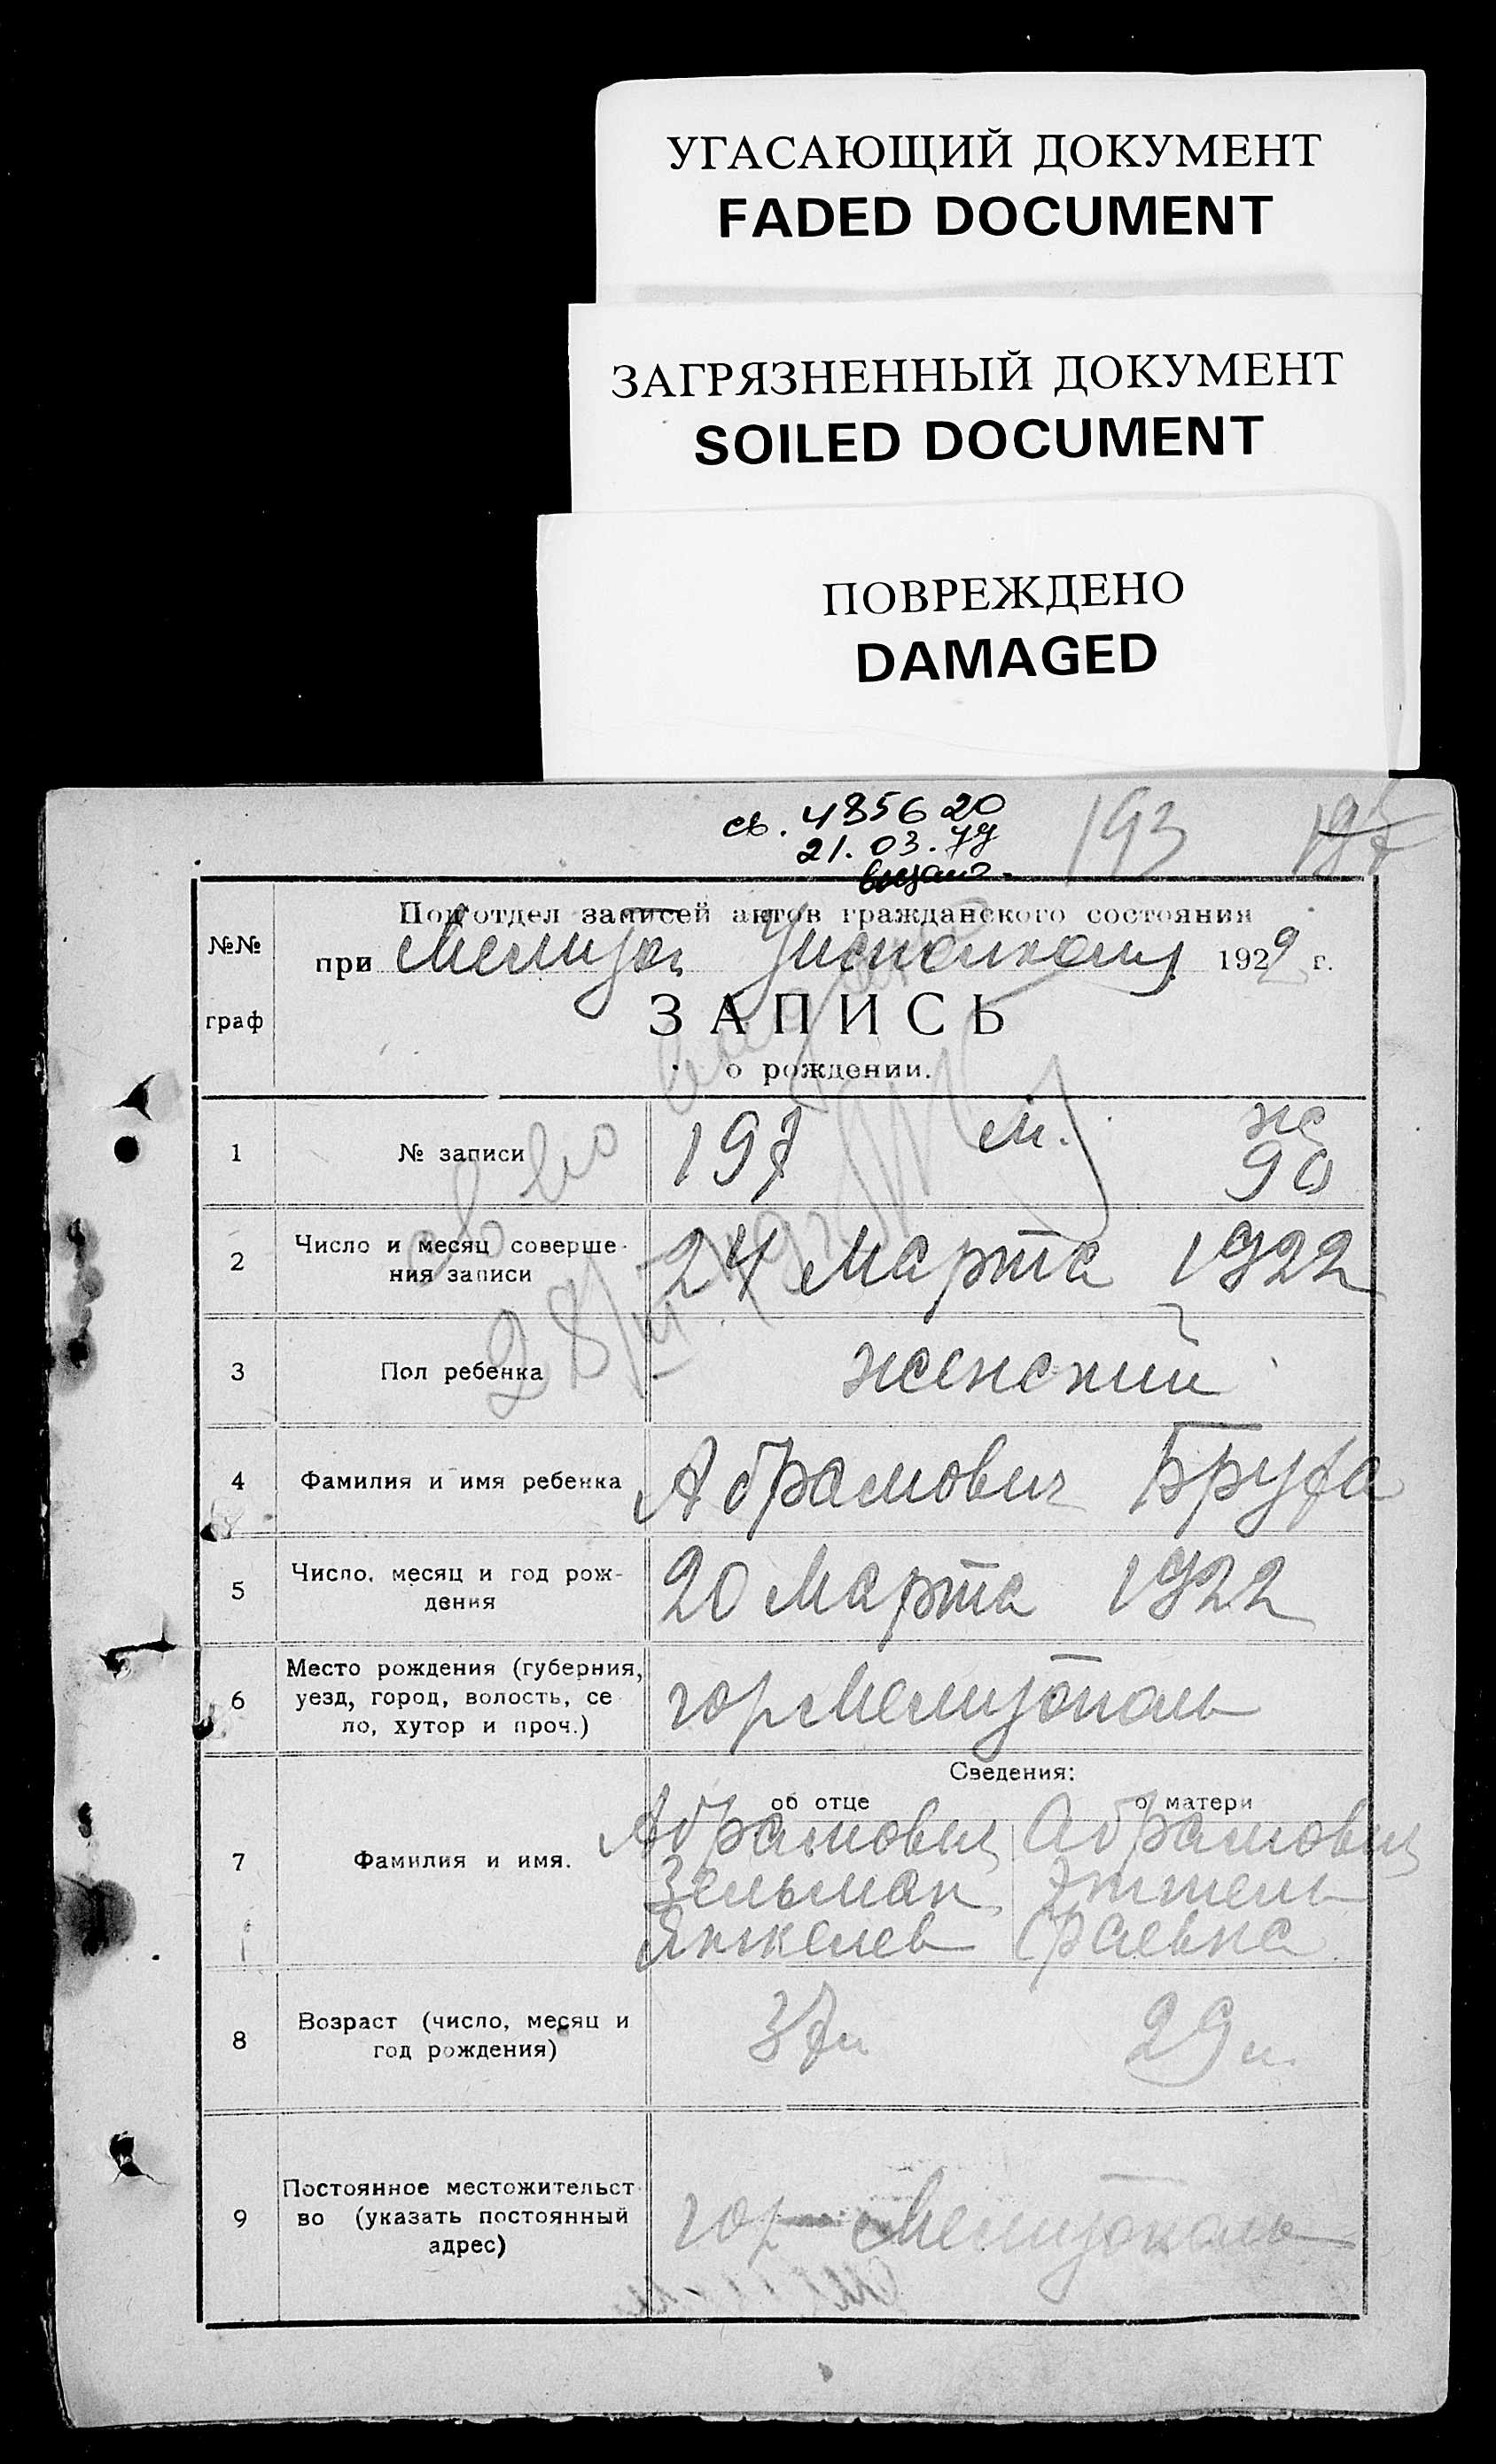 УГАСАЮЩИЙ ДОКУМЕНТ
FADED DOCUMENT
ЗАГРЯЗНЕННЫЙ ДОКУМЕНТ
SOILED DOCUMENT
ПОВРЕЖДЕНО
DAMAGED
св. 435620
21.03.79
193 197
Подотдел записей актов гражданского состояния
№№ граф
при Мелитоп Исполкому 1922 г.
ЗАПИСЬ
о рождении.
1 № записи 197 м. же
90
2 Число и месяц соверше-
ния записи 24 марта 1922
3 Пол ребенка женский
4 Фамилия и имя ребенка Абрамович
5 Число, месяц и год рож-
дения 20 Марта 1922
6 Место рождения (губерния,
уезд, город, волость, се
ло, хутор и проч.) гор Мелитополь
Сведения:
об отце о матери
7 Фамилия и имя. Абрамович Абрамович
Зельман Эттель
Янкелев Сраевна
8 Возраст (число, месяц и
год рождения) 37 л 29 л.
9 Постоянное местожительст
во (указать постоянный
адрес) гор Мелитополь